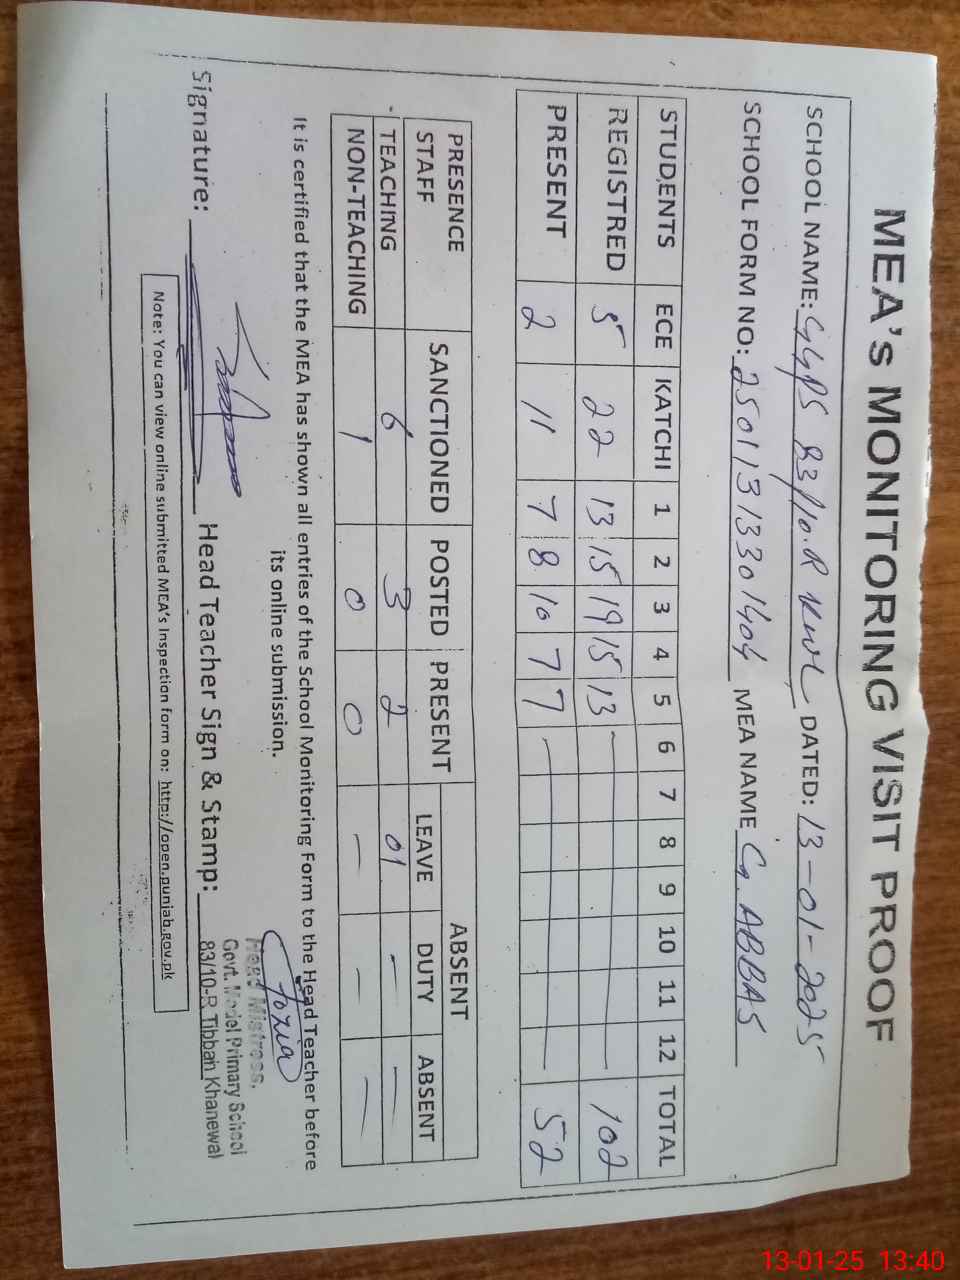 MEA's MONITORING VISIT PROOF
SCHOOL NAME: GGPS 83/10.R KWL DATED: 13-01-2025
SCHOOL FORM NO: 25011313301404 MEA NAME G. ABBAS
STUDENTS ECE KATCHI 1 2 3 4 5 6 7 8 9 10 11 12 TOTAL
REGISTRED 5 22 13 15 19 15 13 — 102
PRESENT 2 11 7 8 10 7 7 — 52
PRESENCE STAFF SANCTIONED POSTED PRESENT ABSENT
LEAVE DUTY ABSENT
TEACHING 6 3 2 01 — —
NON-TEACHING 1 0 0 — — —
It is certified that the MEA has shown all entries of the School Monitoring Form to the Head Teacher before
its online submission.
Fozia
Head Mistress.
Govt. Model Primary School
Signature: Head Teacher Sign & Stamp: 83/10-R Tibbah Khanewal
Note: You can view online submitted MEA's Inspection form on: http://open.punjab.gov.pk
13-01-25 13:40